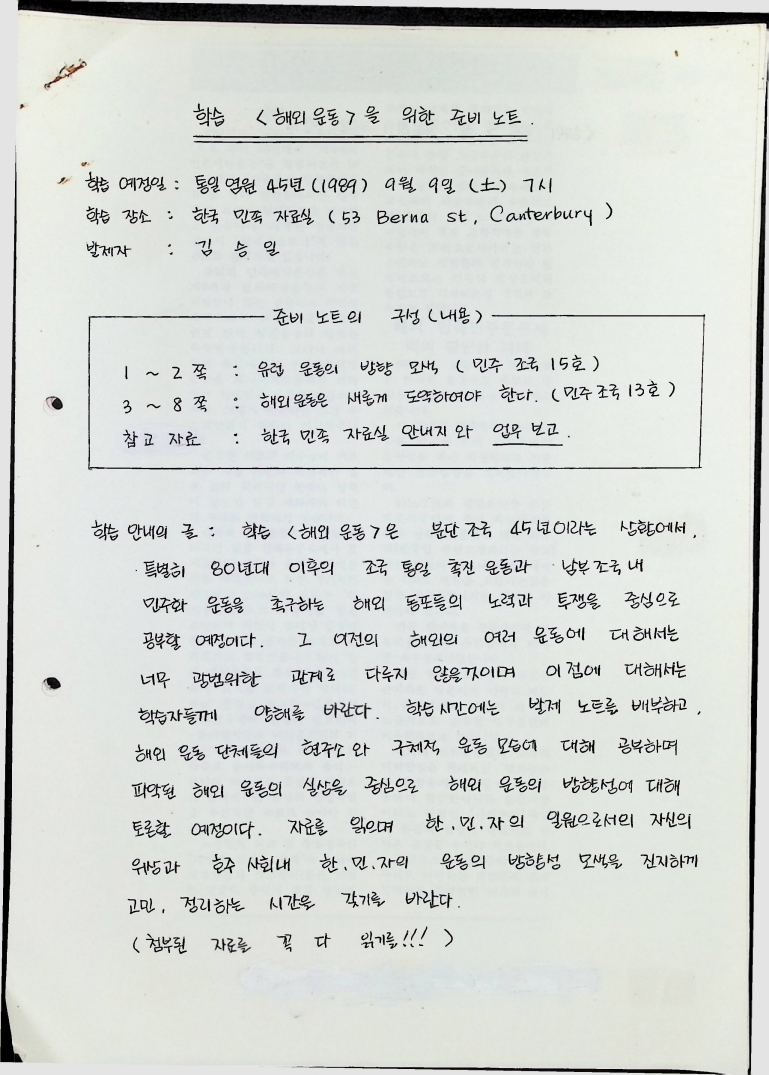 학습 <해외 운동>을 위한 준비 노트.
학습 예정일 : 통일 염원 45년 (1989) 9월 9일 (土) 7시
학습 장소 : 한국 민족 자료실 (53 Berna st, Canterbury)
발제자 : 김 승 일
준비 노트의 구성 (내용)
1 ~ 2 쪽 : 유럽 운동의 방향 모색 (민주 조국 15호)
3 ~ 8 쪽 : 해외운동은 새롭게 도약하여야 한다. (민주 조국 13호)
참고 자료 : 한국 민족 자료실 안내지와 업무 보고.
학습 안내의 글 : 학습 <해외 운동>은 분단 조국 45년이라는 상황에서,
특별히 80년대 이후의 조국 통일 촉진 운동과 남부 조국 내
민주화 운동을 촉구하는 해외 동포들의 노력과 투쟁을 중심으로
공부할 예정이다. 그 이전의 해외의 여러 운동에 대해서는
너무 광범위한 관계로 다루지 않을것이며 이 점에 대해서는
학습자들께 양해를 바란다. 학습 시간에는 발제 노트를 배부하고,
해외 운동 단체들의 현주소와 구체적 운동 모습에 대해 공부하며
파악된 해외 운동의 실상을 중심으로 해외 운동의 방향성에 대해
토론할 예정이다. 자료를 읽으며 한.민.자의 일원으로서의 자신의
위상과 호주 사회내 한.민.자의 운동의 방향성 모색을 진지하게
고민, 정리하는 시간을 갖기를 바란다.
(첨부된 자료를 꼭 다 읽기를!!!)